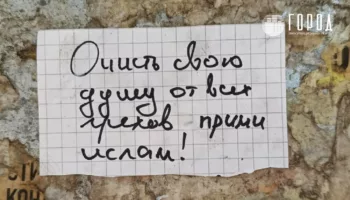 ГОРОД
Очисть свою
душу от всех
грехов прими
ислам!
СТИ
КОН